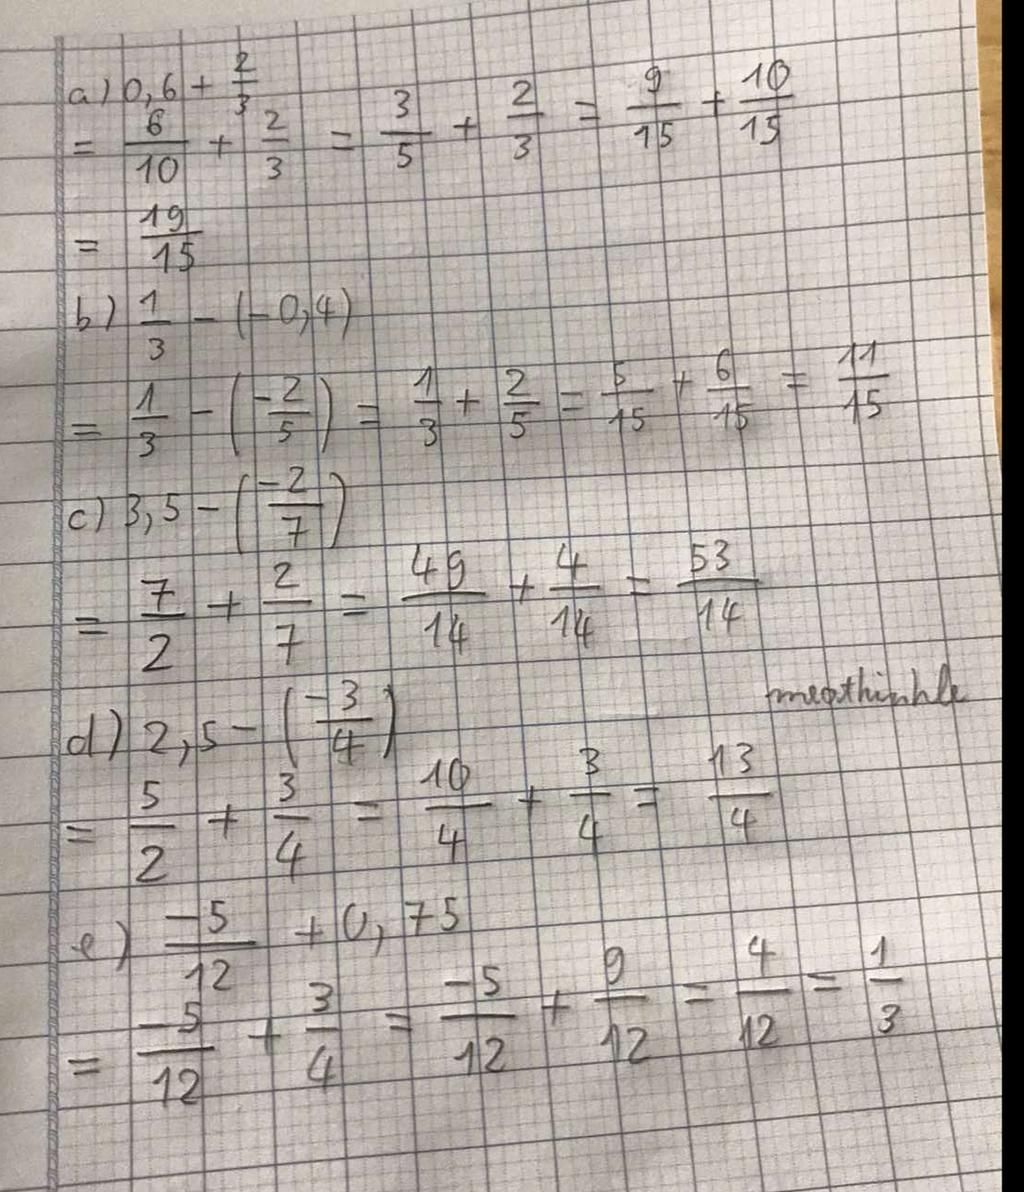 a) 0,6 + 2/3
= 6/10 + 2/3 = 3/5 + 2/3 = 9/15 + 10/15
= 19/15
b) 1/3 - (-0,4)
= 1/3 - (-2/5) = 1/3 + 2/5 = 5/15 + 6/15 = 11/15
c) 3,5 - (-2/7)
= 7/2 + 2/7 = 49/14 + 4/14 = 53/14
d) 2,5 - (-3/4)
= 5/2 + 3/4 = 10/4 + 3/4 = 13/4
e) -5/12 + 0,75
= -5/12 + 3/4 = -5/12 + 9/12 = 4/12 = 1/3